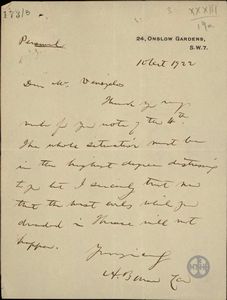 173/3
XXXIII
19a
Personal
24, ONSLOW GARDENS,
S.W.7.
10 Oct 1922
Dear Mr. Venizelos
Thank you very
much for your note of the 4th.
The whole situation must be
in the highest degree distressing
to you but I sincerely trust
that the worst evils which you
dreaded in Thrace will not
happen.
Yours
A. Bonar Law